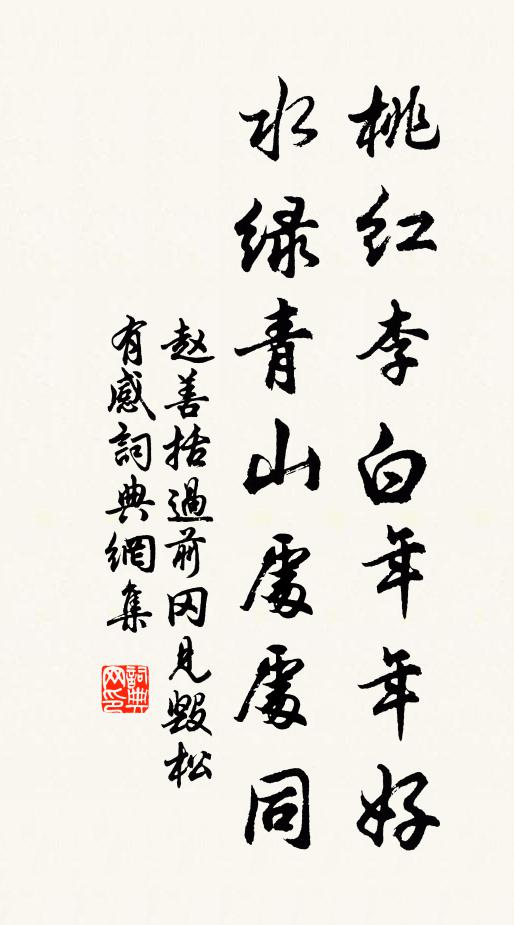 桃红李白年年好
水绿青山處處同
赵善括過前冈見毀松
有感詞典網集
詞典网印